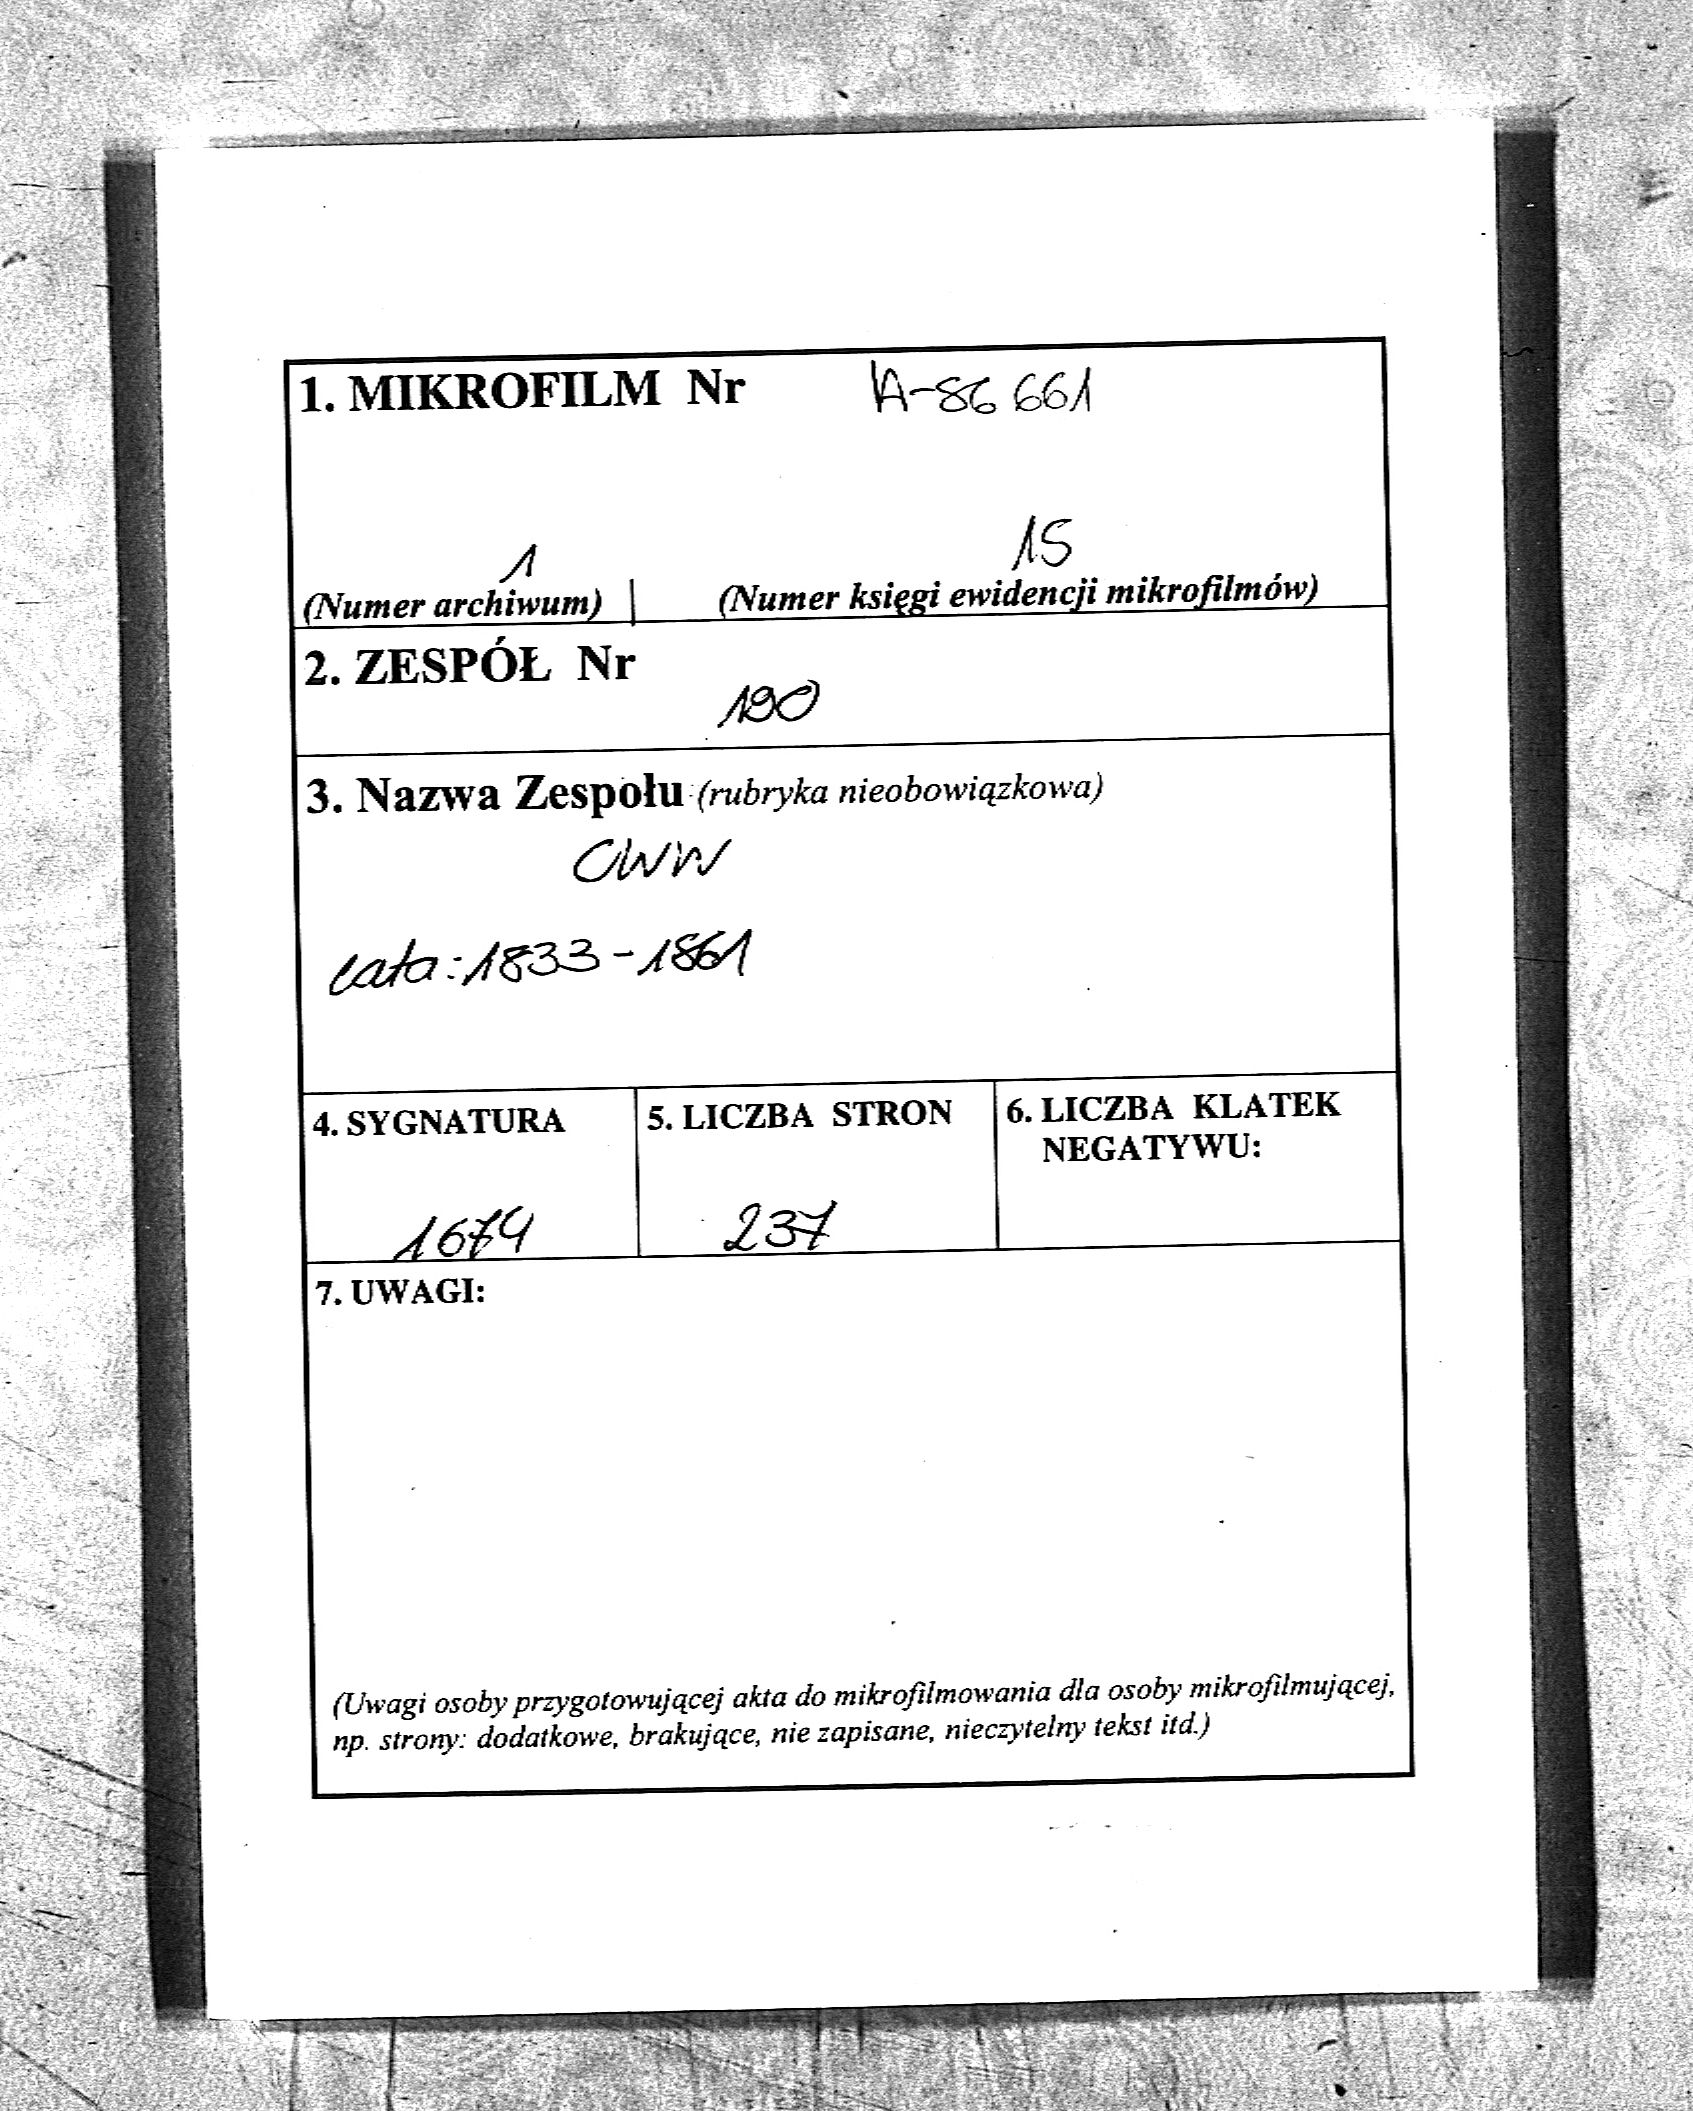 1. MIKROFILM Nr A-86 661
1 15
(Numer archiwum) (Numer księgi ewidencji mikrofilmów)
2. ZESPÓŁ Nr
190
3. Nazwa Zespołu (rubryka nieobowiązkowa)
CWW
lata: 1833-1861
4. SYGNATURA 5. LICZBA STRON 6. LICZBA KLATEK
NEGATYWU:
1674 237
7. UWAGI:
(Uwagi osoby przygotowującej akta do mikrofilmowania dla osoby mikrofilmującej,
np. strony: dodatkowe, brakujące, nie zapisane, nieczytelny tekst itd.)